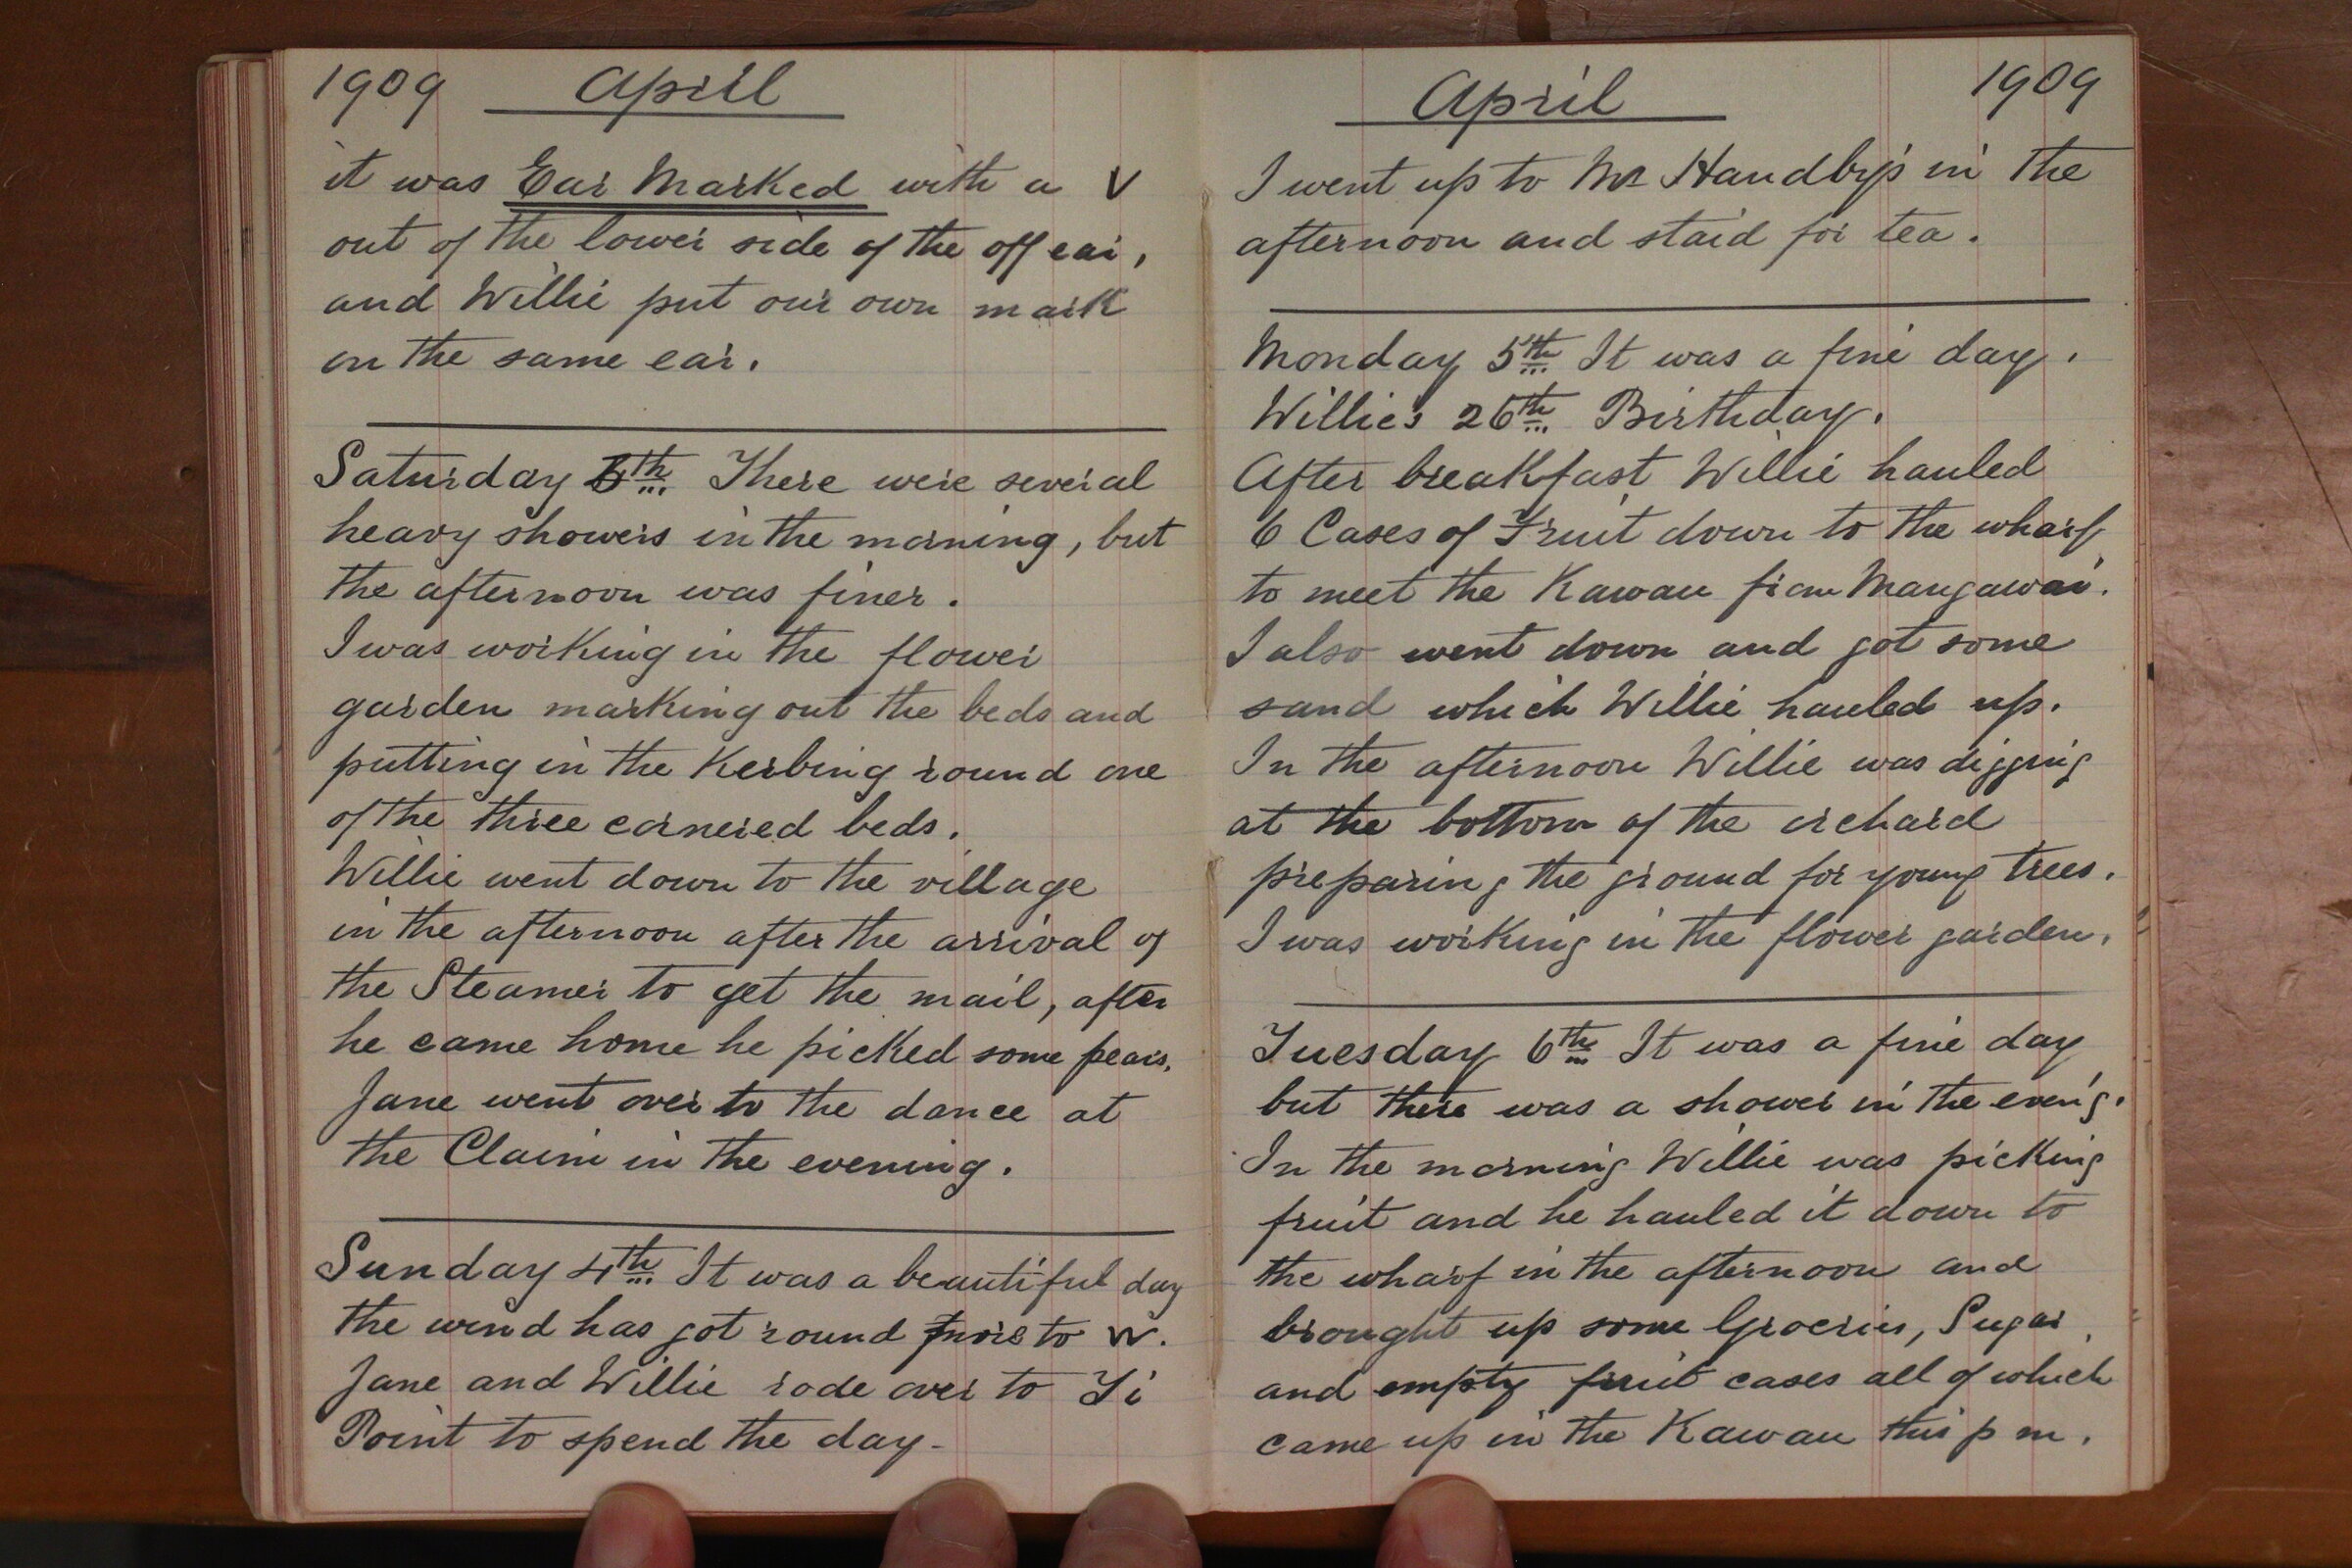 1909 April
it was Ear Marked with a V
out of the lower side of the off ear,
and Willie put our own mark
on the same ear.
Saturday th There were several
heavy showers in the morning, but
the afternoon was finer.
I was working in the flower
garden marking out the beds and
putting in the Kerbing round one
of the three cornered beds.
Willie went down to the village
in the afternoon after the arrival of
the Steamer to get the mail, after
he came home he picked some pears.
Jane went over to the dance at
the Claim in the evening.
Sunday 4th It was a beautiful day
the wind has got round more to W.
Jane and Willie rode over to Ti
Point to spend the day-
April 1909
I went up to Mr Handby's in the
afternoon and staid for tea.
Monday 5th It was a fine day.
Willie's 26th Birthday.
After breakfast Willie hauled
6 Cases of Fruit down to the wharf
to meet the Kawau from Mangawai.
I also went down and got some
sand which Willie hauled up.
In the afternoon Willie was digging
at the bottom of the orchard
preparing the ground for young trees.
I was working in the flower garden.
Tuesday 6th It was a fine day
but there was a shower in the even'g.
In the morning Willie was picking
fruit and he hauled it down to
the wharf in the afternoon and
brought up some Groceries, Sugar,
and empty fruit cases all of which
came up in the Kawau this p m.